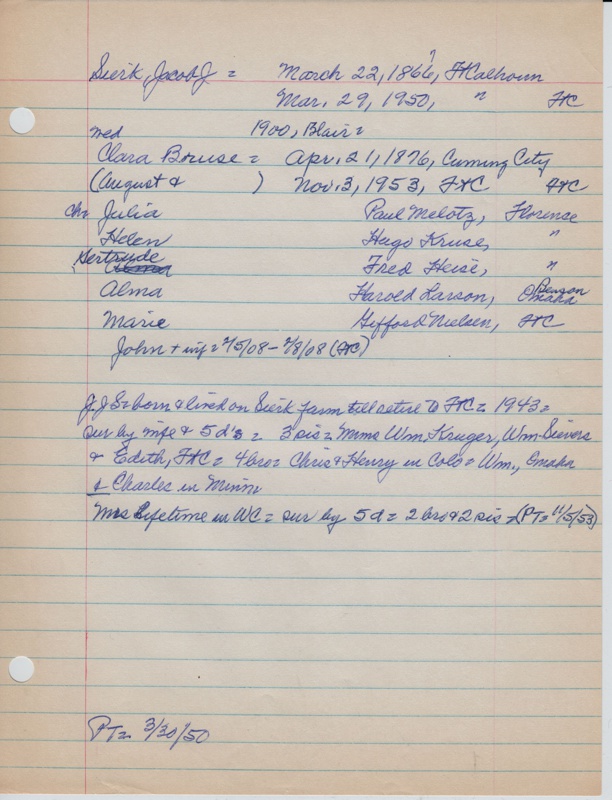 ?
Sierk, Jacob J = March 22, 1866, Ft Calhoun
Mar. 29, 1950, " FtC
med 1900, Blair =
Clara Bruse = Apr. 21, 1876, Cuming City
(August & ) Nov. 3, 1953, FtC FtC
Chr Julia Paul Melotz, Florence
Helen Hugo Kruse, "
Gertrude Fred Heise, "
Alma Harold Larson, Omaha Benson
Marie Gifford Nielsen, FtC
John + inf = 2/5/08 - 2/8/08 (FtC)
J. J S = born & lived on Sierk farm till retire to FtC = 1943 =
sur by wife & 5 d's = 3 sis = Mmes Wm. Kruger, Wm. Sievers
& Edith, FtC = 4 bro = Chris & Henry in Colo = Wm., Omaha
& Charles in Minn
Mrs Lifetime in WC = sur by 5 d = 2 bro & 2 sis = (PT = 11/5/53)
PT = 3/30/50